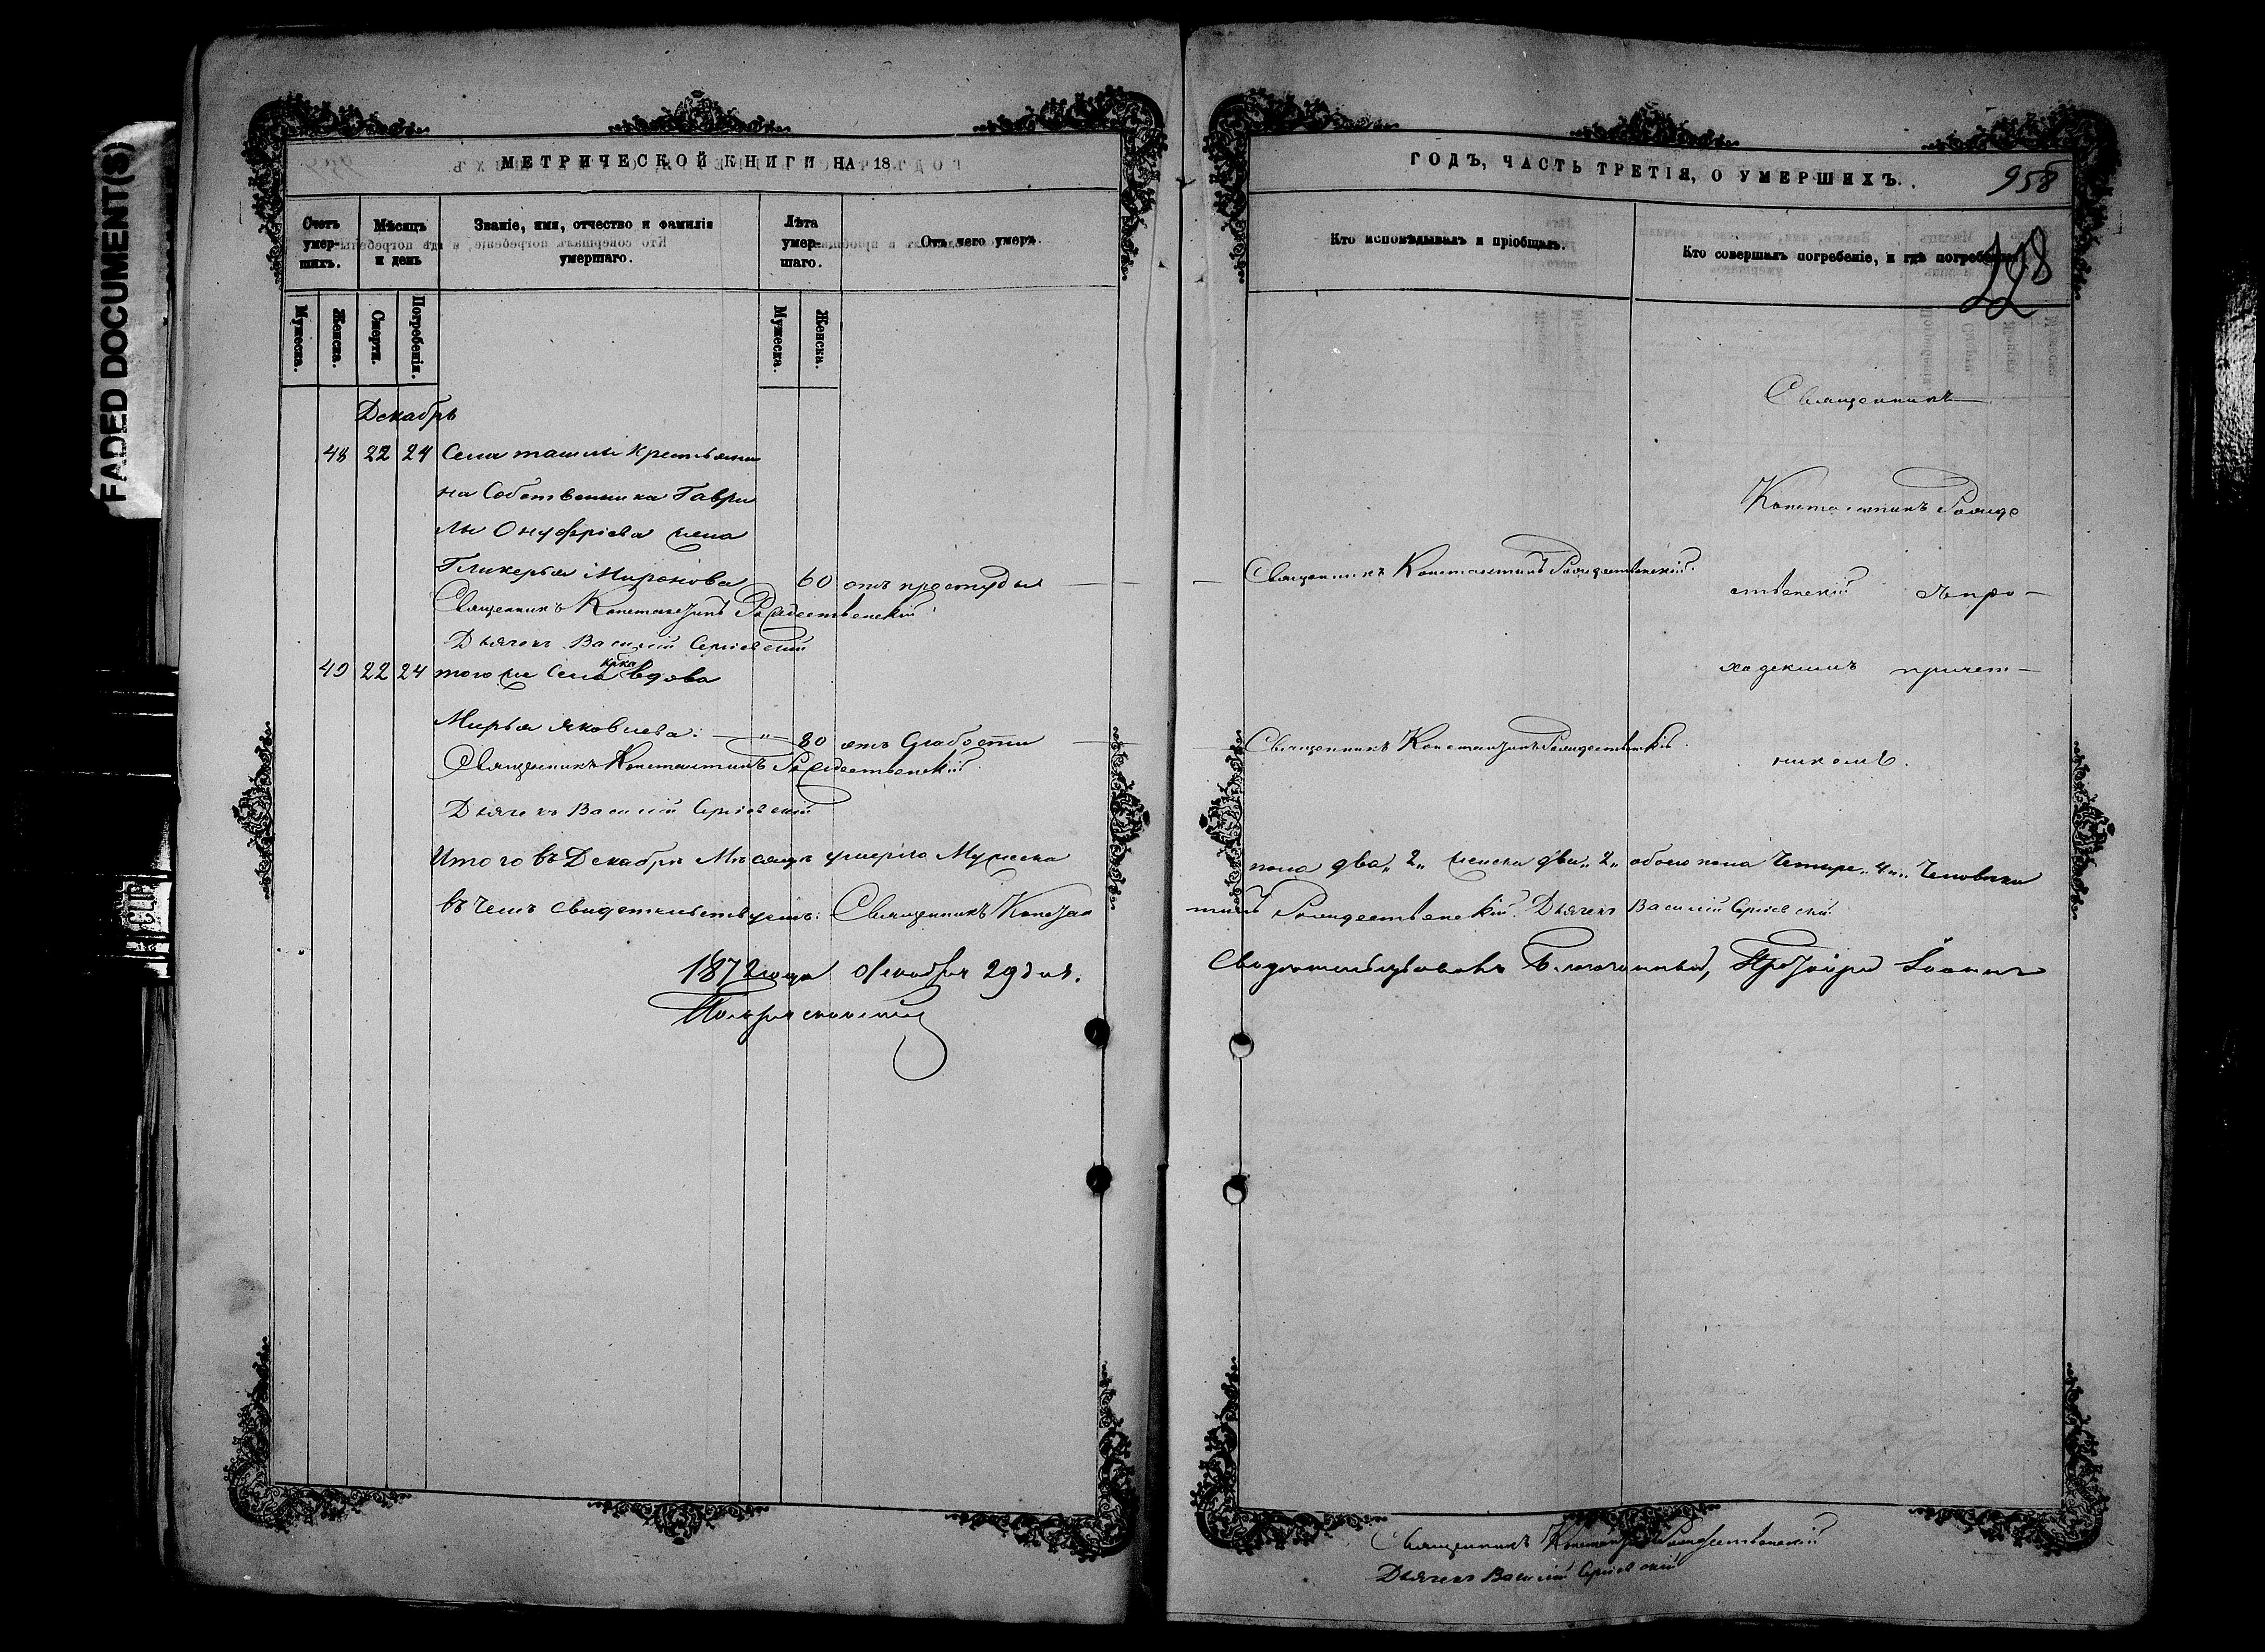 FADED DOCUMENT(S)
МЕТРИЧЕСКОЙ КНИГИ НА 18
Счетъ умер-шихъ.
Мѣсяцъ и день
Званіе, имя, отчество и фамилія умершаго.
Лѣта умер-шаго.
Отъ чего умеръ.
Мужеска.
Женска.
Смерти.
Погребенія.
Мужеска.
Женска.
Декабрь
48 22 24 Села Ташлы крестьяни
на Собственника Гаври
лы Онуфріева жена
Гликерья Миронова 60 отъ простуды
Священникъ Константинъ Рождественскій
Дьячекъ Василій Сергіевскій
49 22 24 того же Села крка вдова
Марья Яковлева: — „ — 80 отъ Слабости
Священникъ Константинъ Рождественскій
Дьячекъ Василій Сергіевскій
Итого въ Декабрѣ Мѣсяцѣ умерло Мужеска
въ чемъ свидетельствуемъ: Священникъ Констан
1872 года Декабря 29 дня.
ГОДЪ, ЧАСТЬ ТРЕТІЯ, О УМЕРШИХЪ.
958
Кто исповѣдывалъ и пріобщалъ.
Кто совершалъ погребеніе, и гдѣ погребены
Священникъ
Константинъ Рожде
Священникъ Константинъ Рождественскій.
ственскій съ при—
ходскимъ причет—
Священникъ Константинъ Рождественскій.
никомъ.
пола два „2„ женска два „2„ обоего пола четыре „4„ человѣка
тинъ Рождественскій. Дьячекъ Василій Сергіевскій
Свидѣтельствовалъ Благочинный, Іоаннъ
Священникъ Константинъ Рождественскій
Дьячекъ Василій Сергіевскій